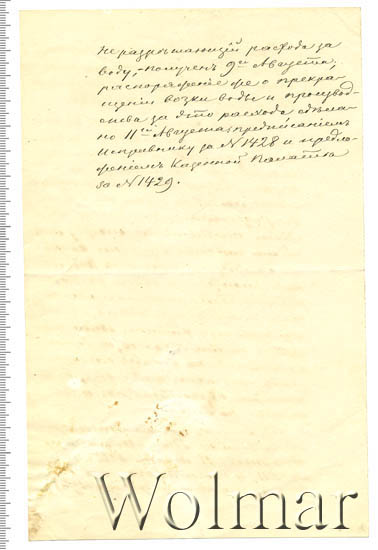 не разрѣшающій расхода за
воду, - полученъ 9го Августа,
распоряженіе же о прекра-
щеніи возки воды и производ-
ства за это расхода сдѣла-
но 11го Августа: предписаніемъ
Исправнику за №1428 и предло-
женіемъ Казенной Палатѣ
за №1429.
Wolmar